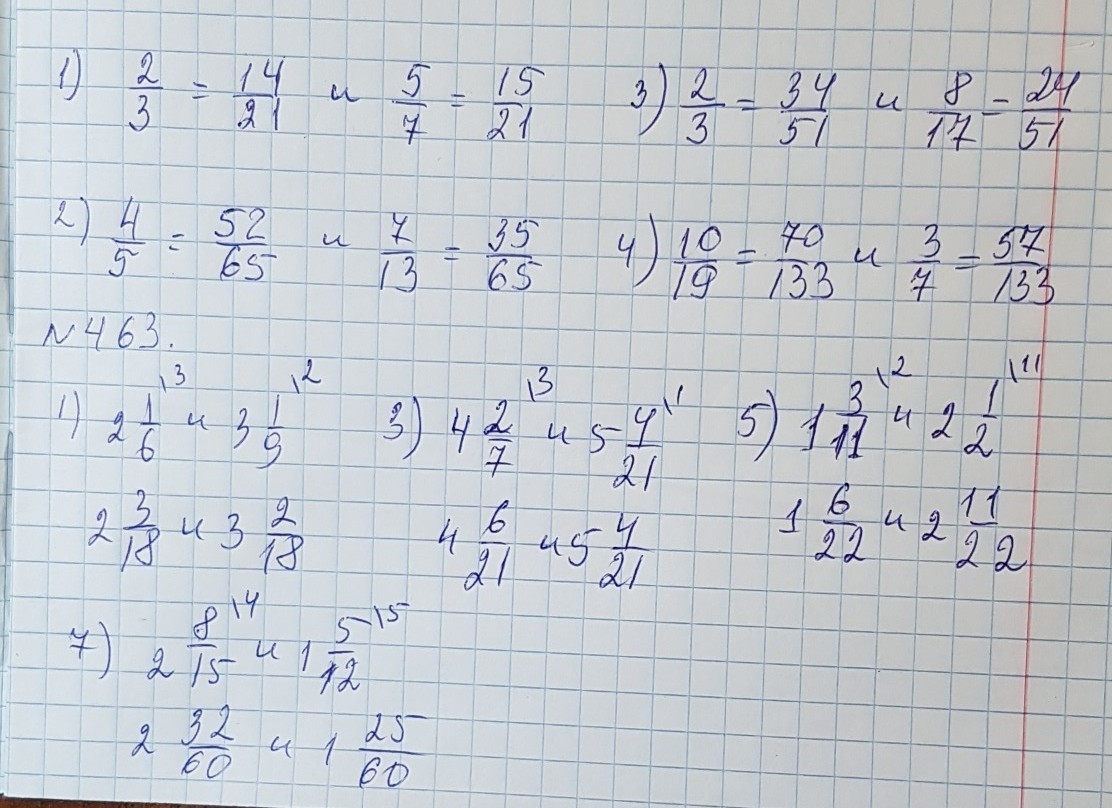 1) 2/3 = 14/21 и 5/7 = 15/21 3) 2/3 = 34/51 и 8/17 = 24/51
2) 4/5 = 52/65 и 7/13 = 35/65 4) 10/19 = 70/133 и 3/7 = 57/133
№463.
1) 2 1/6 \3 и 3 1/9 \2 3) 4 2/7 \3 и 5 4/21 \1 5) 1 3/11 \2 и 2 1/2 \11
2 3/18 и 3 2/18 4 6/21 и 5 4/21 1 6/22 и 2 11/22
7) 2 8/15 \4 и 1 5/12 \5
2 32/60 и 1 25/60